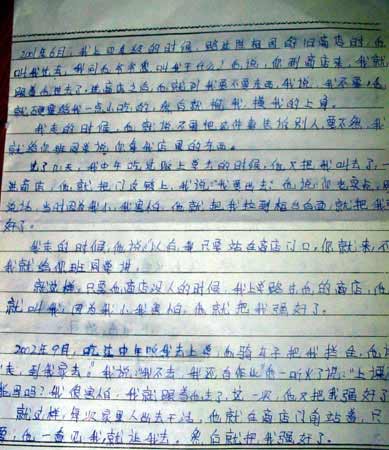 2001年6月,我上四年级的时候,路过他的商店时,他
叫我进去,我问他你叫我干什么?他说,你到商店来,我就
跟着他进去了,进商店之后,他就问我要不要东西,我说,我不要,他
就硬要给我一点小吃的,然后就摸我,摸我的上身。
我走的时候,他就说不要把这件事告诉别人,要不然,我
就给你班同学说,你拿我店里的东西。
过了几天,我中午吃过饭上学去的时候,他又把我叫去了,一
进商店,他就把门反锁上,我说:"我要出去",他说,你
当时因为我小,我害怕,他就把我拉到柜台后面,就把我
好了。
我走的时候,他说,以后我只要站在商店门口,你就来,不
我就给你班同学讲。
就这样,只要他商店没人的时候,我上学路过他的商店,他
就叫我,因为我小,我害怕,他就把我强好了。
2002年9月,吃过中午饭我去上学,他骑车子把我拦住,他
走,到我家去。"我说:"我不去,我还有作业"他一听火了说:"上课
我很害怕,我就跟着他去了,这一次,他又把我强好了
就这样,每次家里人出去干活,他就在商店门前站着,只
要他一看见我,就让我去,然后就把我强好了。